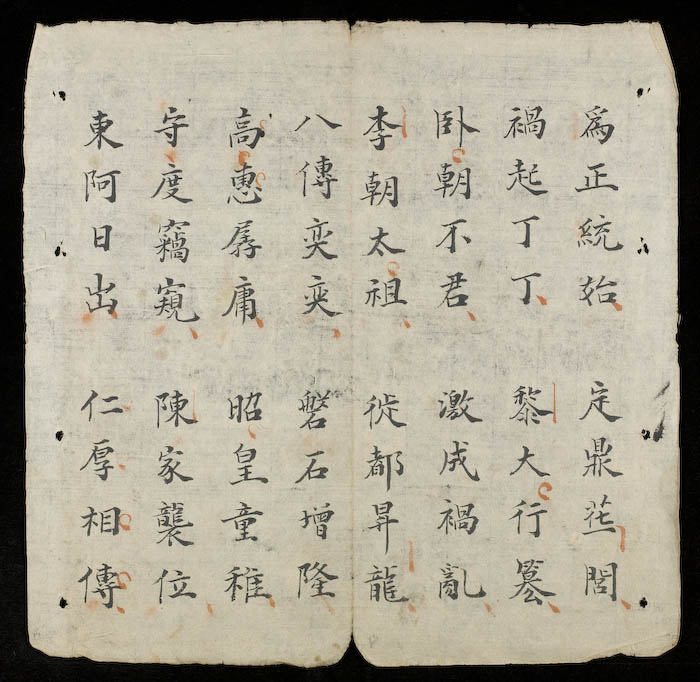 爲正統始 定鼎花閭
禍起丁丁 黎大行篡
卧朝不君 激成禍亂
李朝太祖 徙都昇龍
八傳奕奕 磐石增隆
高惠孱庸 昭皇童稚
守度竊窺 陳家襲位
東阿日出 仁厚相傳